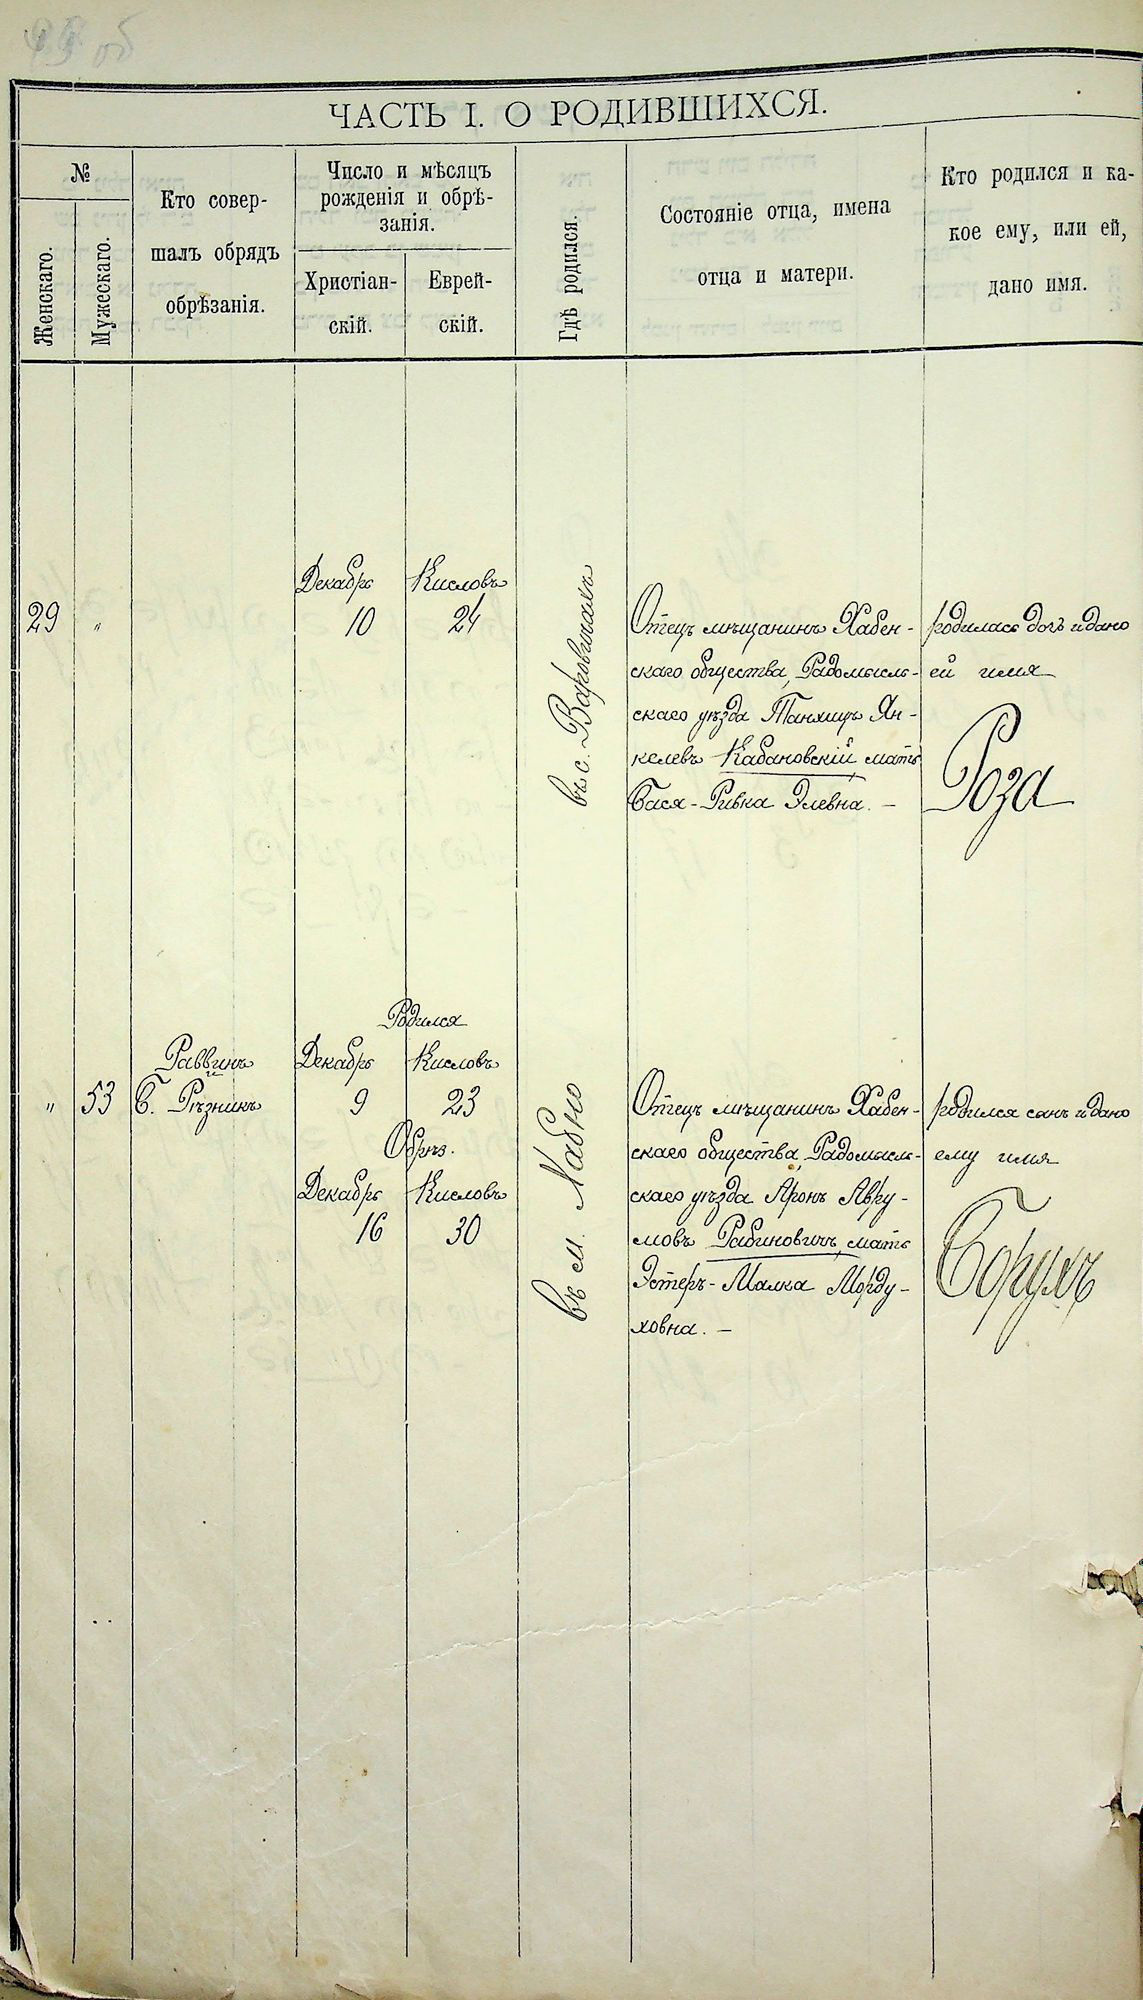 об
ЧАСТЬ I. О РОДИВШИХСЯ.
№
Женскаго.
Мужескаго.
Кто совер-
шалъ обрядъ
обрѣзанія.
Число и мѣсяцъ
рожденія и обрѣ-
занія.
Христіан-
скій.
Еврей-
скій.
Гдѣ родился.
Состояніе отца, имена
отца и матери.
Кто родился и ка-
кое ему, или ей,
дано имя.
29
"
Декабрь
10
Кисловъ
24
въ с. Варовичахъ
Отецъ мѣщанинъ Хабен-
скаго общества, Радомысль-
скаго уѣзда Танхимъ Ян-
келевъ Кабановскій, мать
Бася-Ривка Элевна. —
родилась дочь и дано
ей имя
Роза
"
53
Раввинъ
Б. Рѣзникъ
Родился
Декабрь
9
Кисловъ
23
Обрѣз.
Декабрь
16
Кисловъ
30
въ м. Хабно
Отецъ мѣщанинъ Хабен-
скаго общества, Радомысль-
скаго уѣзда Аронъ Авру-
мовъ Рабиновичъ, мать
Эстеръ-Малка Морду-
ховна. —
родился сынъ и дано
ему имя
Борухъ